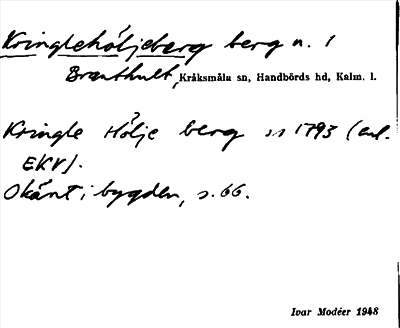 Kringlehöljeberg berg n. i
Branthult, Kråksmåla sn, Handbörds hd, Kalm. l.
Kringle Hölje berg sn 1793 (enl.
EKV).
Okänt i bygden, s. 66.
Ivar Modéer 1948